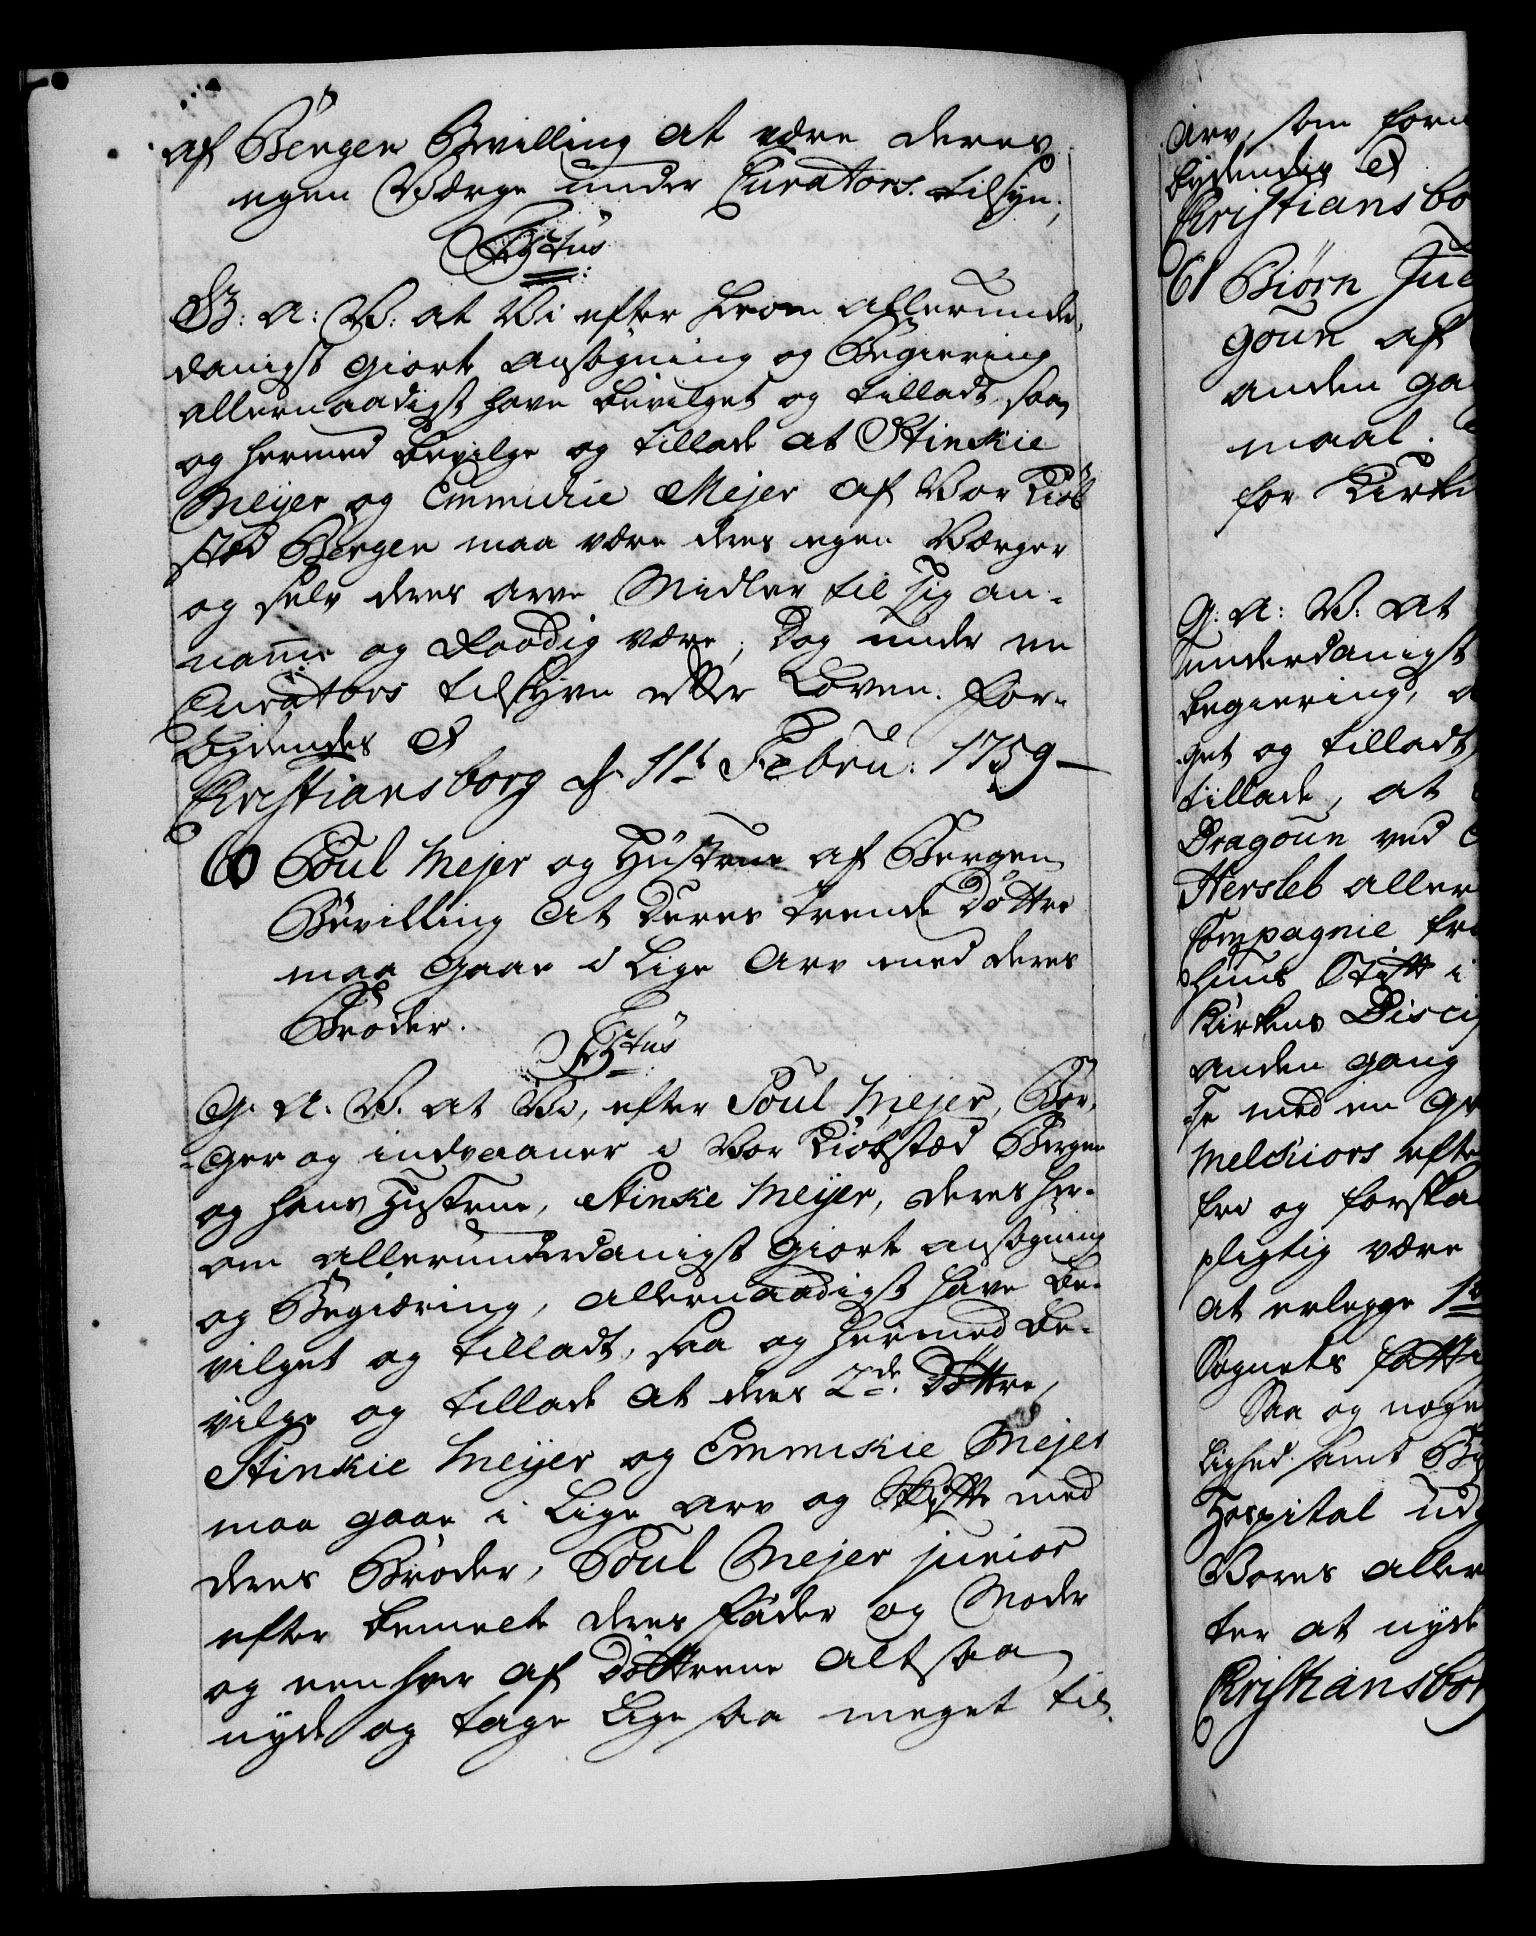 af Bergen Bevilling at være deres
egen Værge under Curators tilsyn.
Textus
G: A: V: at Vi efter herom allerunder,
danigst giort ansøgning og Begiering
allernaadigst have bevilget og tilladt, saa
og hermed bevilge og tillade at Stinkie
Meyer og Emmichie Mejer af Vor Kiøb
stæd Bergen maa være deres egen Værger
og selv deres arve Midler til sig an-
namme og Raadig være, dog under en
Curators tilsyn efter Loven. For-
bydendes &
Christiansborg d: 11t Febru: 1759
60 Poul Mejer og Hustrue af Bergen
Bevilling at deres trende Døttre
maa gaae i Lige Arv med deres
Broder.
Textus
G: A: V: at Vi, efter Poul Mejer, Bor-
ger og indvaaner i Vor Kiøbstæd Bergen
og hans Hustrue, Stinke Meyer, deres her-
om allerunderdanigst giort ansøgning
og Begiæring, allernaadigst have be-
vilget og tilladt, saa og hermed be-
vilge og tillade at deres 2de Døttre,
Stinkie Meyer og Emmikie Mejer
maa gaae i Lige arv og Skifte med
deres Broder, Poul Mejer junior
efter bemelte deres Fader og Moder
og een hver af Døttrene altsaa
nyde og tage Lige saa meget til
Arv, som
bydendes &
Christiansbo
61 Biørn Jue
goun af
anden ga
maal.
for Kirke
G: A: V: at
underdanigst
begiering, a
get og tilladt,
tillade, at
Dragoun ved
Hersleb aller
Compagnie fra
huus Stift i
Kirkens Discip
anden gang
se med en
Melchiors efte
fri og forska
pligtig være
at erlegge
Sognets fatti
Saa og noge
lighed samt By
Hospital udg
Vores aller
ter at nyde
Christiansbor